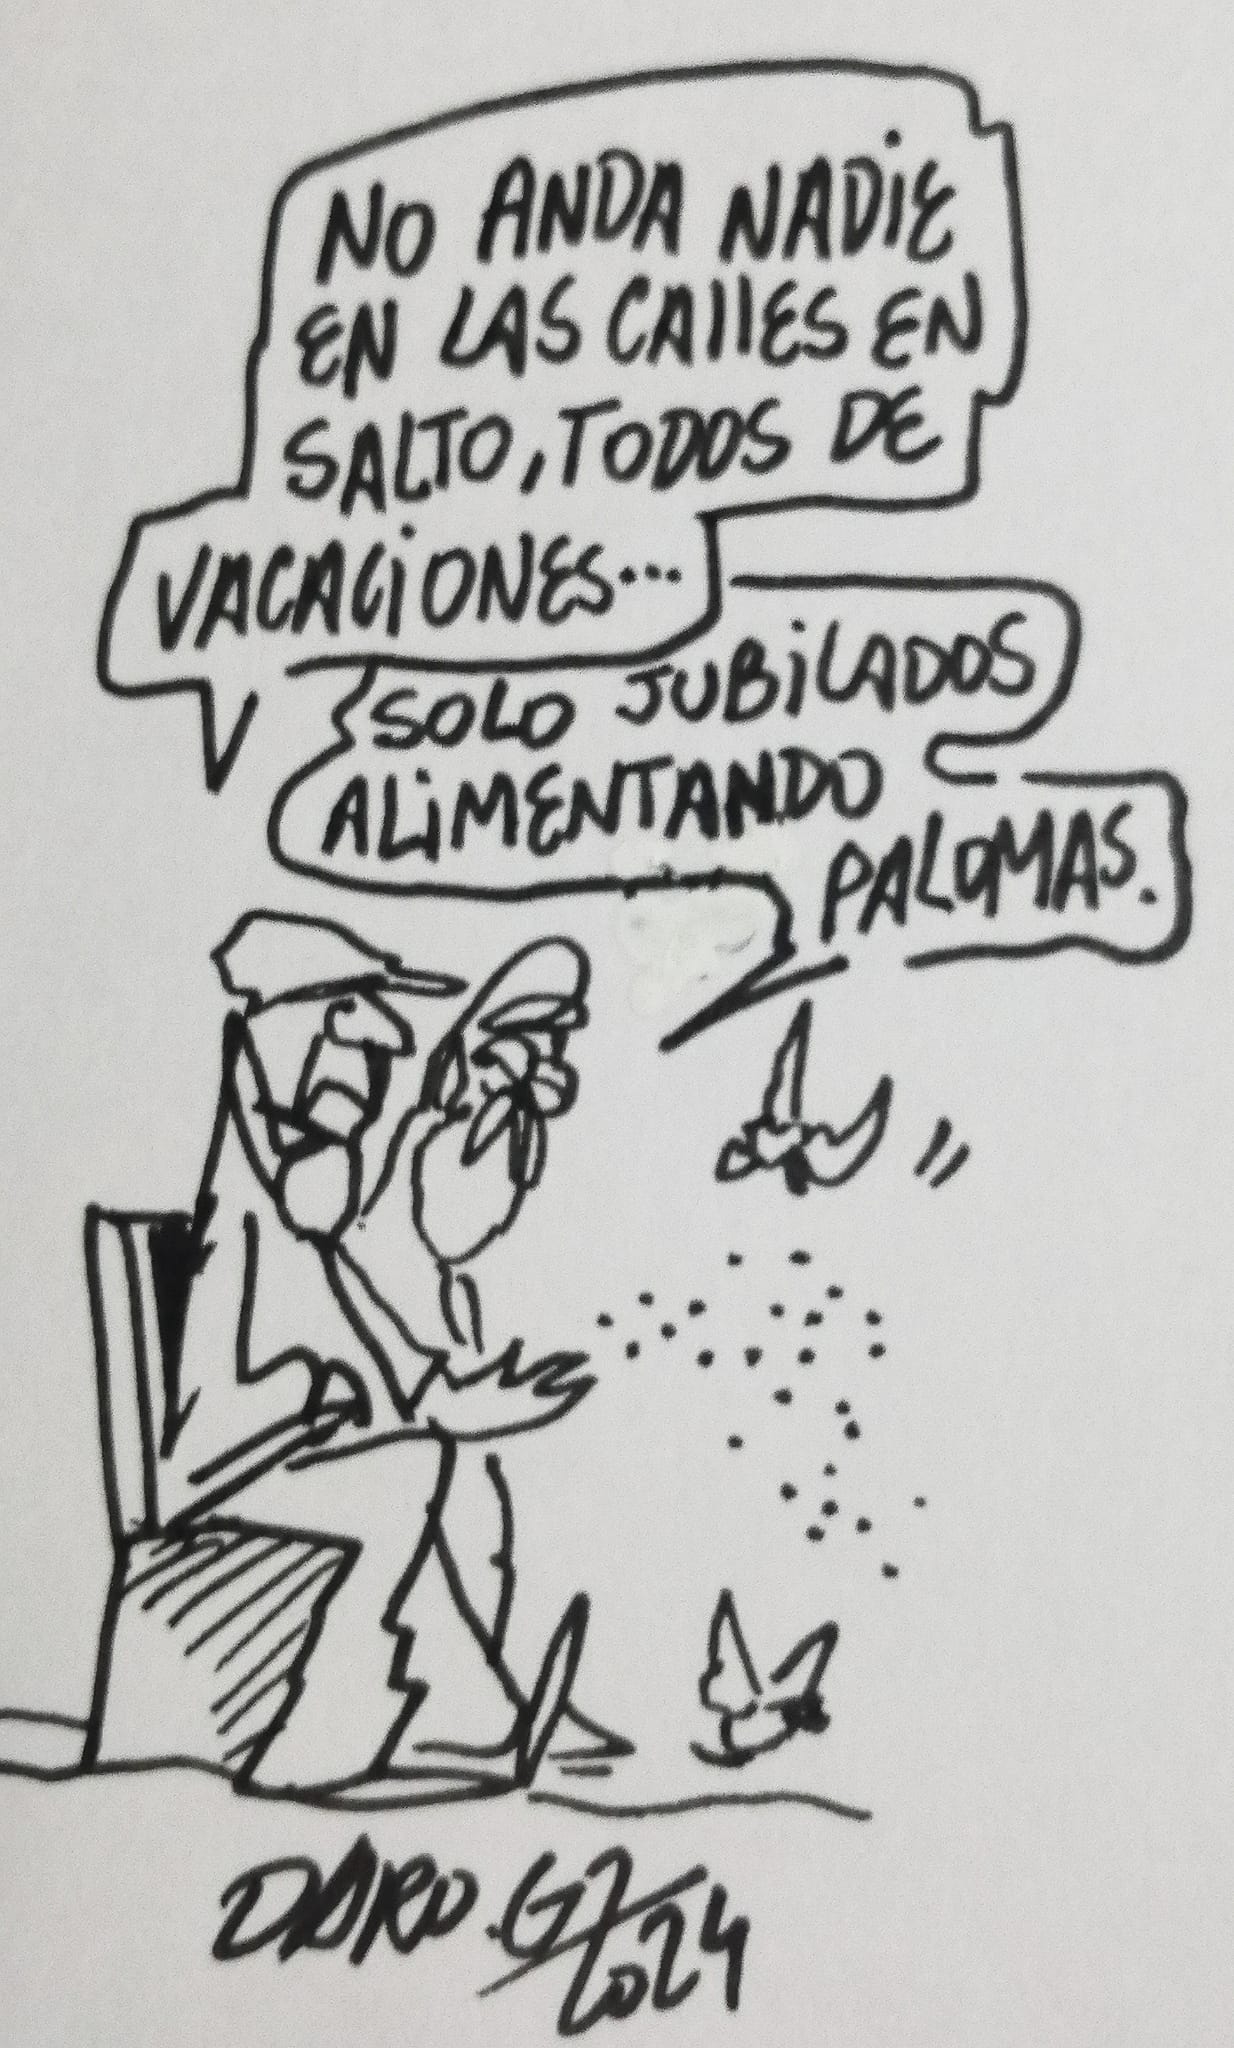 NO ANDA NADIE
EN LAS CALLES EN
SALTO, TODOS DE
VACACIONES...
SOLO JUBILADOS
ALIMENTANDO
PALOMAS.
DARO.G
2024